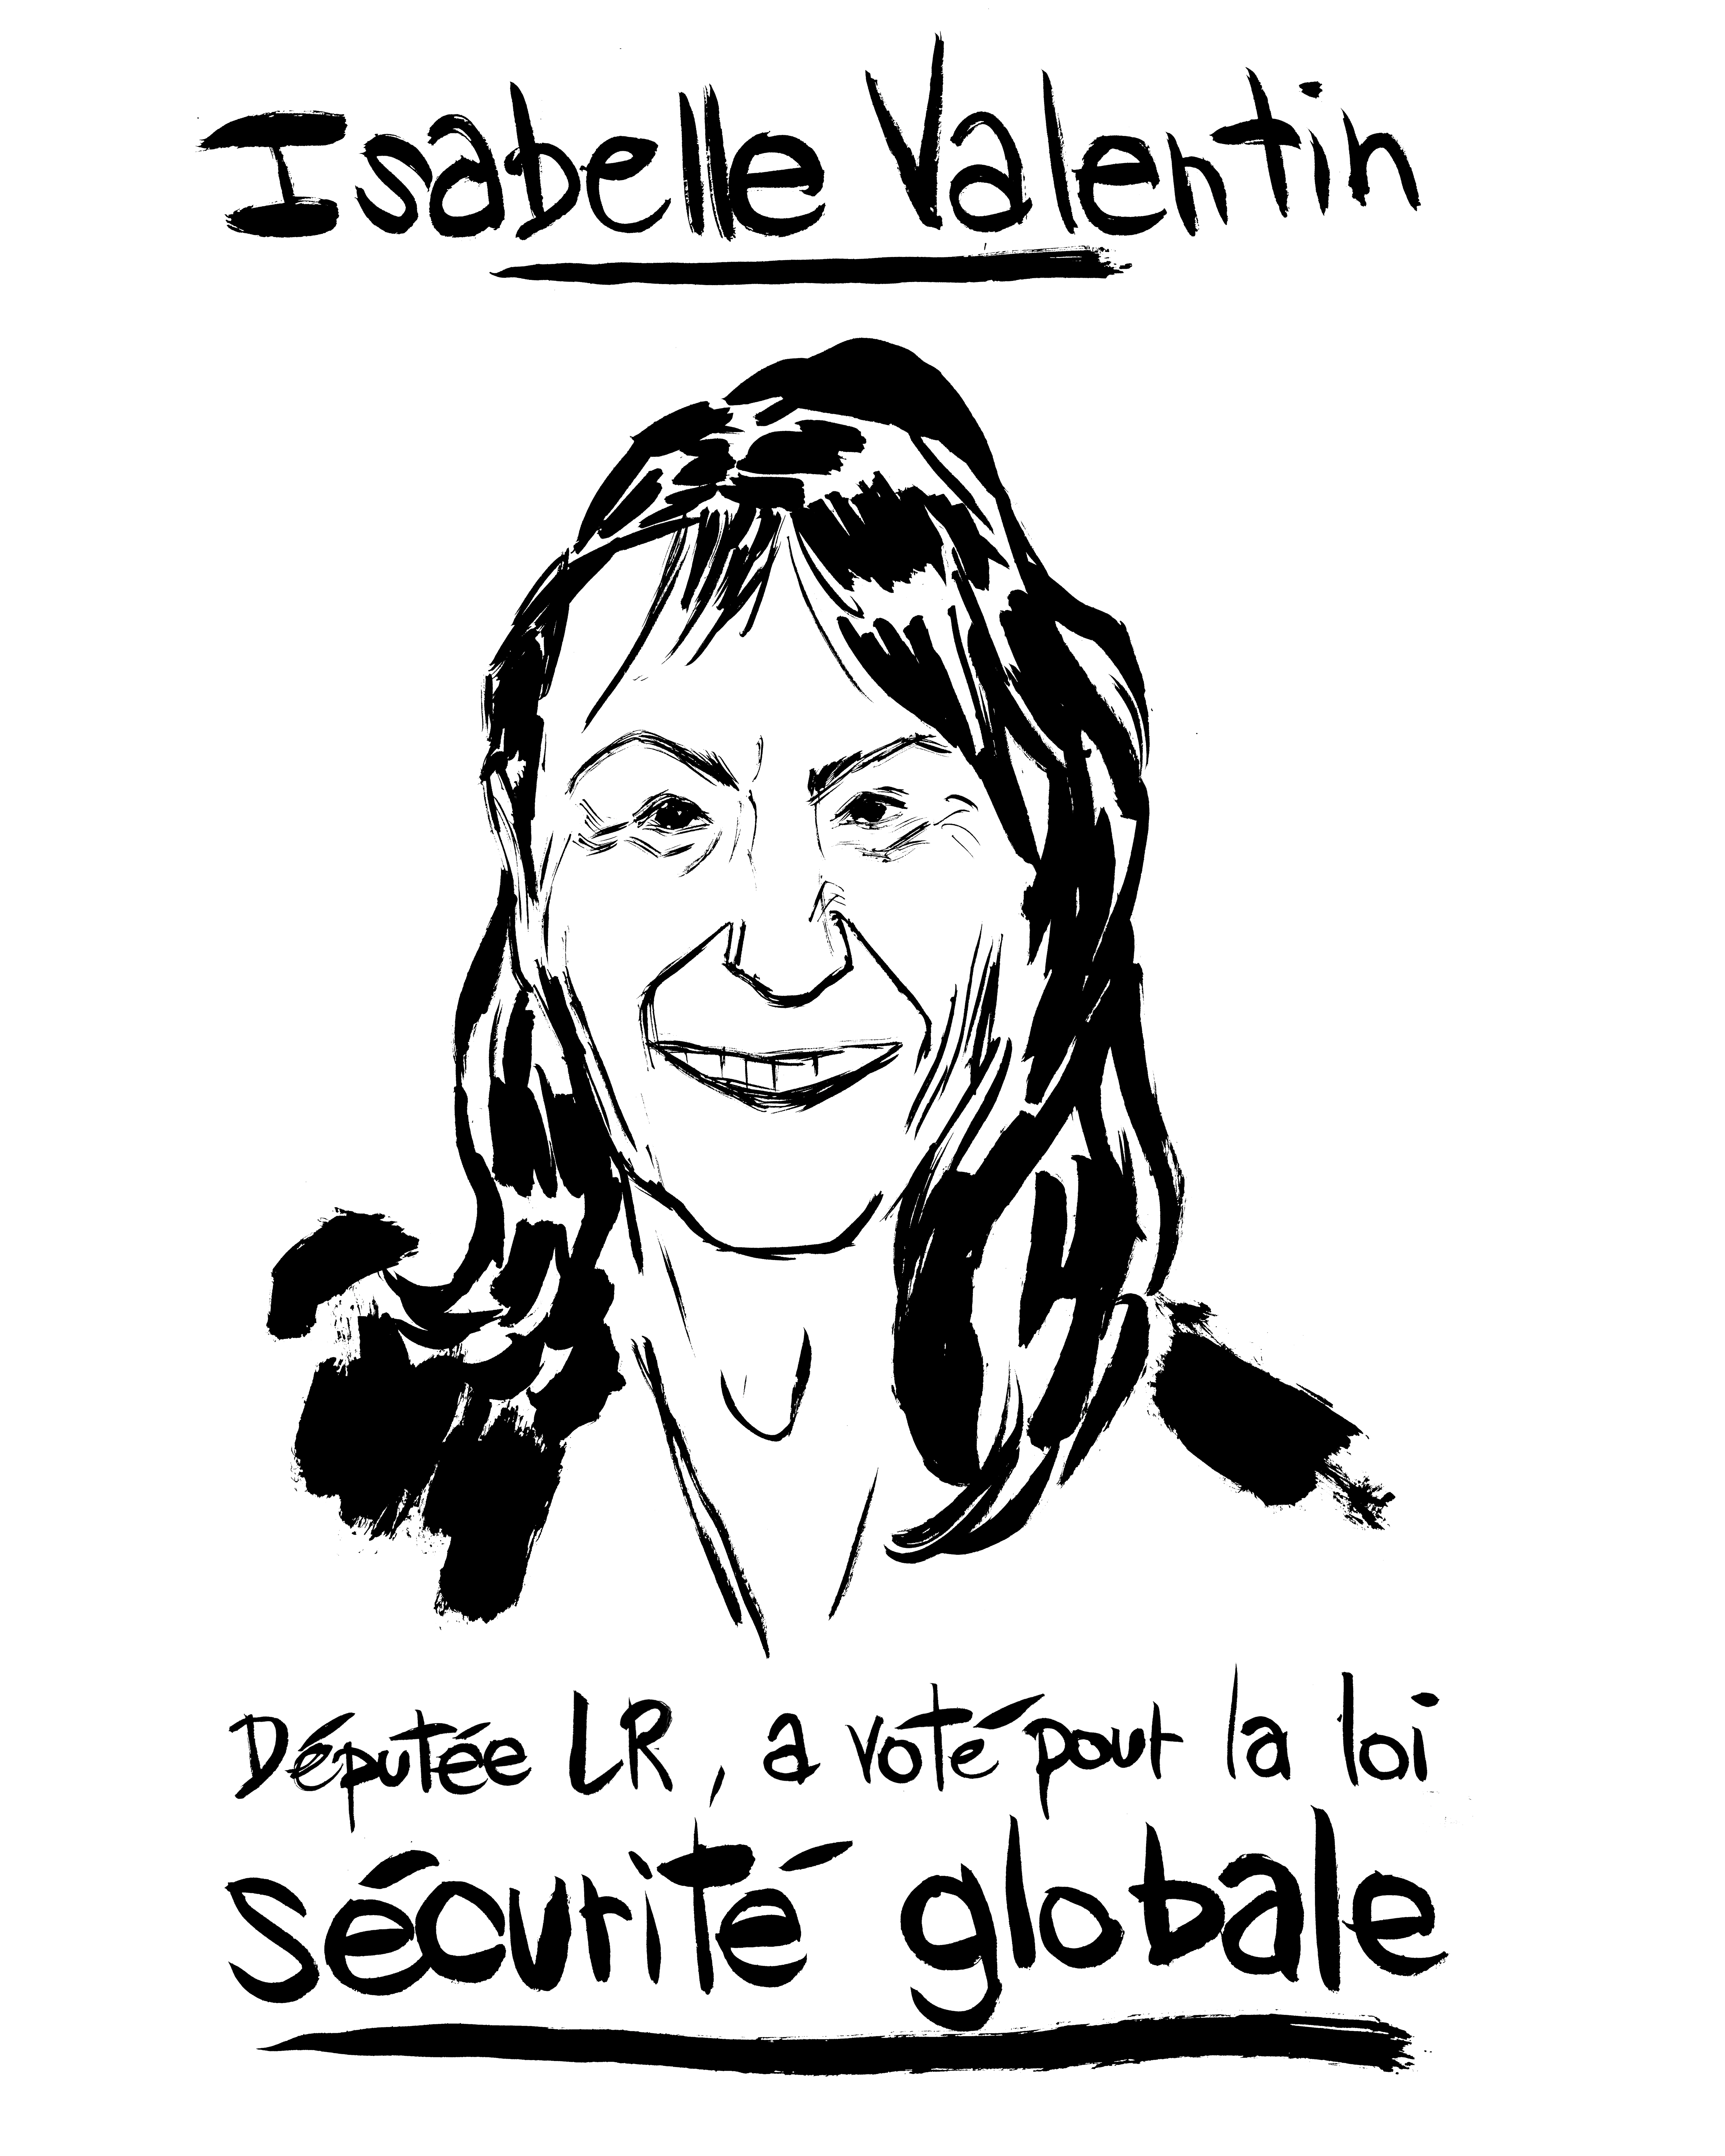 Isabelle Valentin
Députée LR, a voté pour la loi
sécurité globale